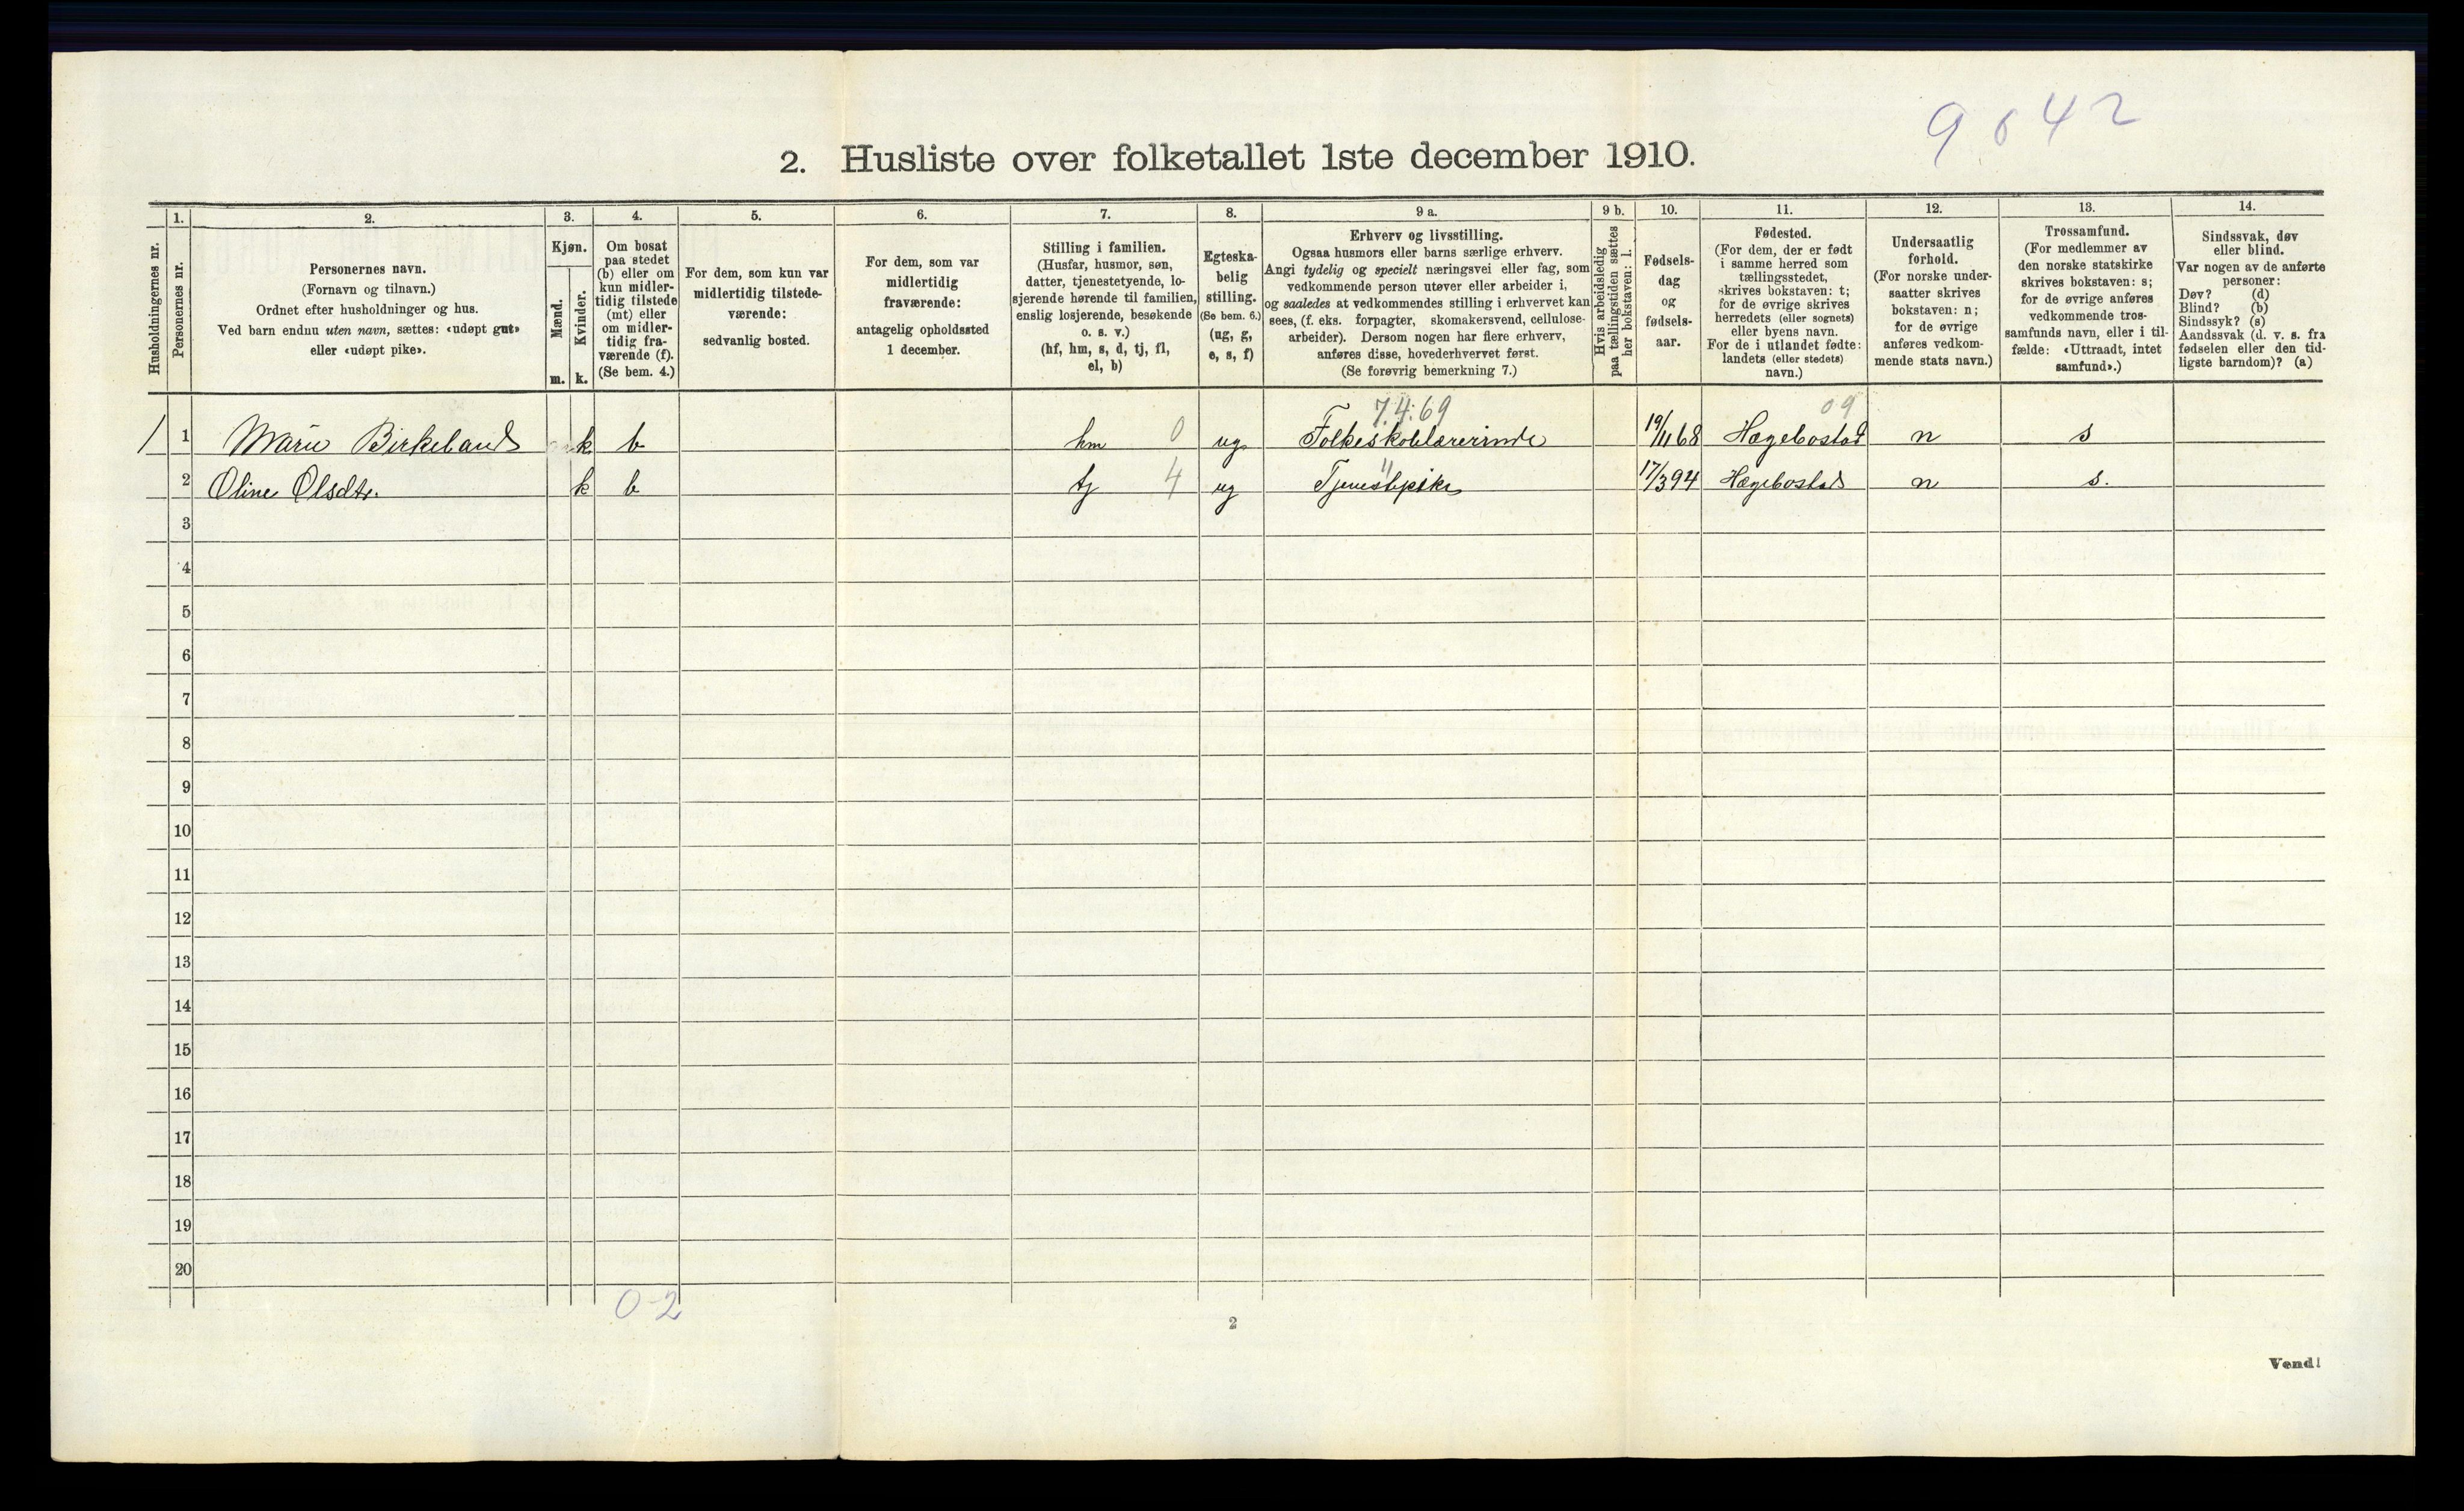 9642
2. Husliste over folketallet 1ste december 1910.
Husholdningernes nr.
1.
Personernes nr.
2.
Personernes navn.
(Fornavn og tilnavn.)
Ordnet efter husholdninger og hus.
Ved barn endnu uten navn, sættes: «udøpt gut»
eller «udøpt pike».
3.
Kjøn.
Mænd.
Kvinder.
m. k.
4.
Om bosat
paa stedet
(b) eller om
kun midler-
tidig tilstede
(mt) eller
om midler-
tidig fra-
værende (f).
(Se bem. 4.)
5.
For dem, som kun var
midlertidig tilstede-
værende:
sedvanlig bosted.
6.
For dem, som var
midlertidig
fraværende:
antagelig opholdssted
1 december.
7.
Stilling i familien.
(Husfar, husmor, søn,
datter, tjenestetyende, lo-
sjerende hørende til familien,
enslig losjerende, besøkende
o. s. v.)
(hf, hm, s, d, tj, fl,
el, b)
8.
Egteska-
belig
stilling.
(Se bem. 6.)
(ug, g,
e, s, f)
9 a.
Erhverv og livsstilling.
Ogsaa husmors eller barns særlige erhverv.
Angi tydelig og specielt næringsvei eller fag, som
vedkommende person utøver eller arbeider i,
og saaledes at vedkommendes stilling i erhvervet kan
sees, (f. eks. forpagter, skomakersvend, cellulose-
arbeider). Dersom nogen har flere erhverv,
anføres disse, hovederhvervet først.
(Se forøvrig bemerkning 7.)
9 b.
Hvis arbeidsledig
paa tællingstiden sættes
her bokstaven: l.
10.
Fødsels-
dag
og
fødsels-
aar.
11.
Fødested.
(For dem, der er født
i samme herred som
tællingsstedet,
skrives bokstaven: t;
for de øvrige skrives
herredets (eller sognets)
eller byens navn.
For de i utlandet fødte:
landets (eller stedets)
navn.)
12.
Undersaatlig
forhold.
(For norske under-
saatter skrives
bokstaven: n;
for de øvrige
anføres vedkom-
mende stats navn.)
13.
Trossamfund.
(For medlemmer av
den norske statskirke
skrives bokstaven: s;
for de øvrige anføres
vedkommende tros-
samfunds navn, eller i til-
fælde: «Uttraadt, intet
samfund».)
14.
Sindssvak, døv
eller blind.
Var nogen av de anførte
personer:
Døv? (d)
Blind? (b)
Sindssyk? (s)
Aandssvak (d. v. s. fra
fødselen eller den tid-
ligste barndom)? (a)
7.4.69 09
1 1 Marie Birkeland k b hm 0 ug Folkeskolelærerinde 19/11 68 Hægebostad n s
2 Oline Olsdtr. k b tj 4 ug Tjenestepike 17/3 94 Hægebostad n s.
3
4
5
6
7
8
9
10
11
12
13
14
15
16
17
18
19
20
0-2
2
Vend!